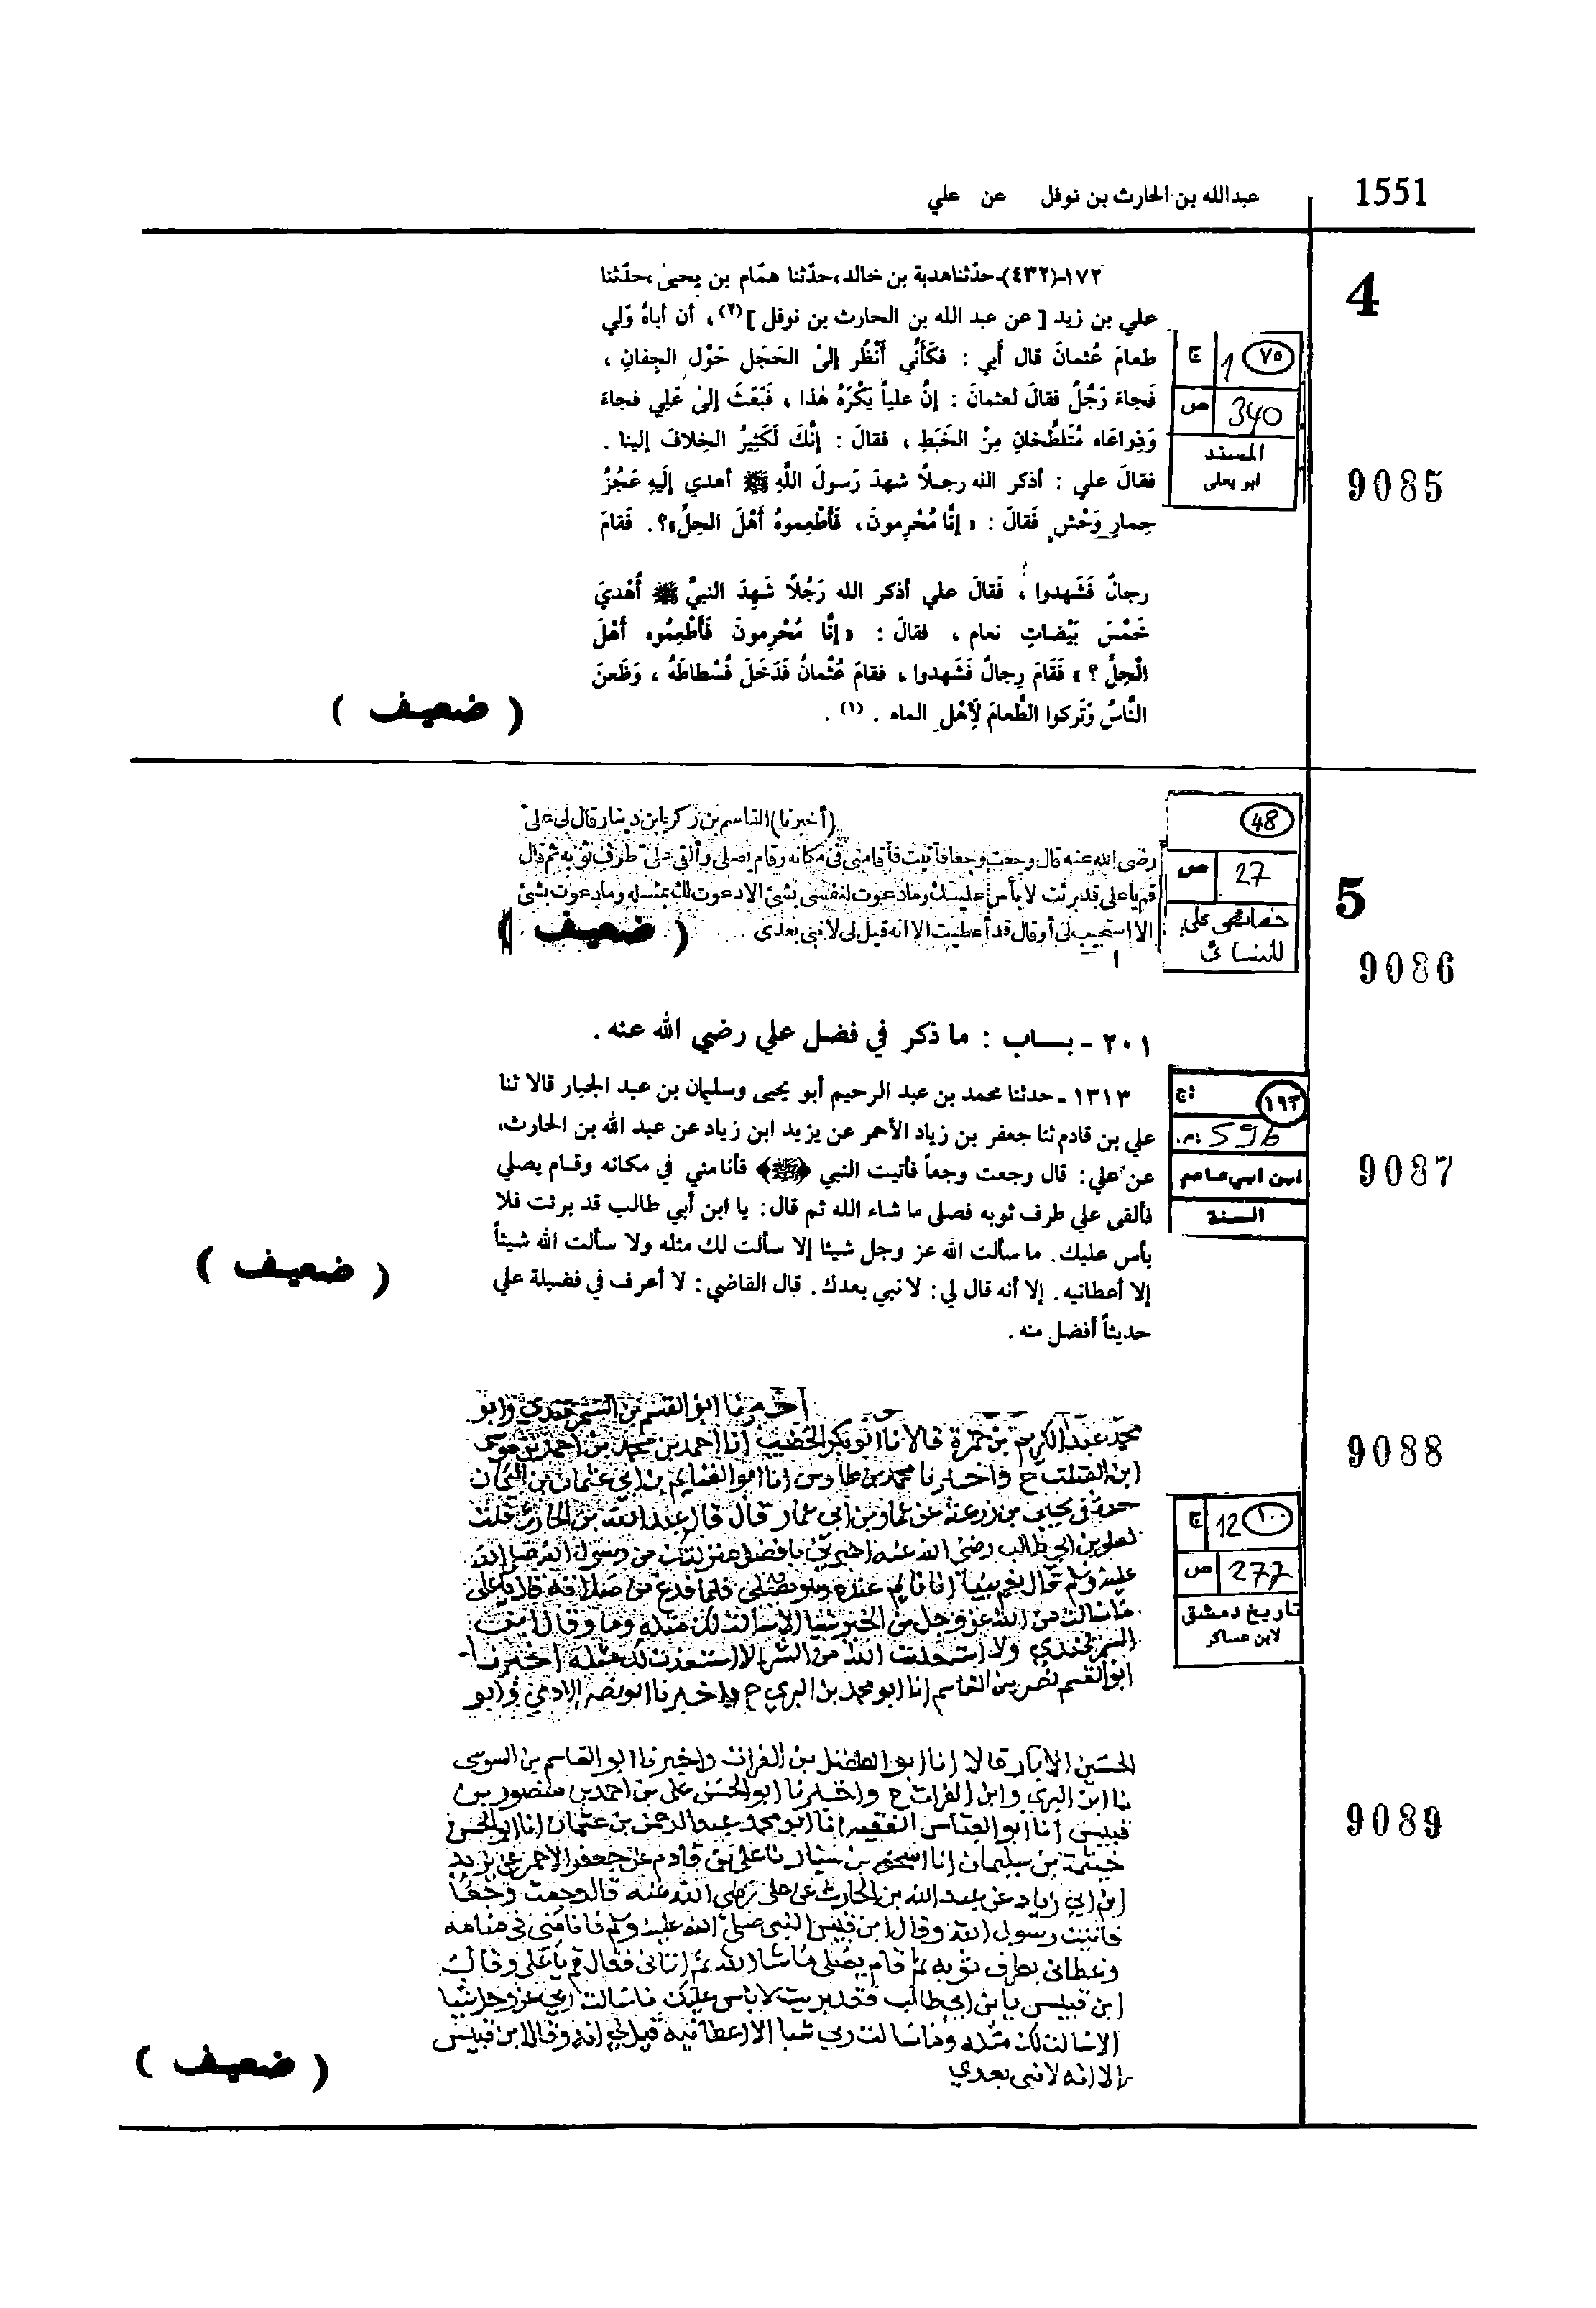 1551
عبدالله بن الحارث بن نوفل عن علي
4
١٧٢-(٤٣٢)- حدّثنا هدبة بن خالد، حدّثنا همّام بن يحيى، حدّثنا
علي بن زيد [ عن عبد الله بن الحارث بن نوفل ](٢)، أن أباهُ وَلي
طعامَ عُثمانَ قال أَبي : فكَأَنِّي أَنْظُر إلىٰ الحَجَل حَوْل الجِفانِ ،
فَجاءَ رَجُلٌ فقالَ لعثمانَ : إنَّ علياً يَكْرَهُ هٰذا ، فَبَعَثَ إلىٰ عَلِي فجاءَ
وَذِراعَاه مُتَلَطِّخانِ مِنْ الخَبَطِ ، فقالَ : إنَّكَ لَكَثِيرُ الخِلافَ إلينا .
فقالَ علي : أذكر الله رجلاً شهدَ رَسولَ اللَّهِ ﷺ أهدي إلَيهِ عَجُزُ
حِمارِ وَحْشٍ فَقالَ : « إنَّا مُحْرِمونَ، فَأَطْعِموهُ أَهْلَ الحِلِّ»؟. فَقامَ
رجالٌ فَشَهِدوا ، فَقالَ علي أذكر الله رَجُلاً شَهِدَ النبيَّ ﷺ أُهْديَ
خَمْسَ بَيْضاتِ نعام ، فقالَ : « إنَّا مُحْرِمونَ فَأَطْعِمُوه أَهْلَ
الْحِلِّ ؟ » فَقَامَ رِجالٌ فَشَهِدوا ، فقامَ عُثْمانُ فَدَخَلَ فُسْطاطَهُ ، وَظَعنَ
النَّاسُ وَتَركوا الطَّعامَ لِأَهْلِ الماء . (١) .
( ضعيف )
ج 1 ٧٥
ص 340
المسند
ابو يعلى
9085
(أخبرنا) القاسم بن زكريا بن دينار قال لى على
رضى الله عنه قال وجعت وجعا فأتيت فأقامنى فى مكانه وقام يصلى وألقى على طرف ثوبه ثم قال
قم يا على قد برئت لا بأس عليك وما دعوت لنفسى بشئ الا دعوت لك بمثله وما دعوت بشئ
الا استجيب لى أو قال قد أعطيت الا انه قيل لى لا نبى بعدى
( ضعيف )
48
ص 27
خصائص علي
للنسائي
5
9086
٢٠١ - بـاب : ما ذكر في فضل علي رضي الله عنه .
١٣١٣ - حدثنا محمد بن عبد الرحيم أبو يحيى وسليمان بن عبد الجبار قالا ثنا
علي بن قادم ثنا جعفر بن زياد الأحمر عن يزيد ابن زياد عن عبد الله بن الحارث،
عن علي: قال وجعت وجعاً فأتيت النبي ﴿ﷺ﴾ فأنامني في مكانه وقام يصلي
فألقى علي طرف ثوبه فصلى ما شاء الله ثم قال: يا ابن أبي طالب قد برئت فلا
بأس عليك. ما سألت الله عز وجل شيئا إلا سألت لك مثله ولا سألت الله شيئاً
إلا أعطانيه. إلا أنه قال لي: لا نبي بعدك. قال القاضي: لا أعرف في فضيلة علي
حديثاً أفضل منه .
( ضعيف )
ج: ١٩٣
ص: 596
ابن ابي عاصم
السنة
9087
أخبرنا ابو القسم بن السمرقندي وابو
محمد عبد الكريم بن حمزة قالا نا ابو بكر الخطيب انا احمد بن محمد بن احمد بن موسى
ابن الصلت ح واخبرنا محمد بن طاوس انا ابو الغنايم بن ابي عثمان
حدثني يحيى بن زرعة عن عمار بن ابي عمار قال قال عبد الله بن الحارث قلت
لعلي بن ابي طالب رضى الله عنه اخبرني بافضل منزلتك من رسول الله صلى الله
عليه وسلم قال نعم بينا انا نايم عنده وهو يصلي فلما فرغ من صلاته قال يا علي
ما سالت من الله عز وجل من الخير شيا الا سالت لك مثله وما وقال ابن
السمرقندي ولا استعذت الله من الشر الا استعذت لك مثله اخبرنا
ابو القسم نصر بن القاسم انا ابو محمد بن البري ح واخبرنا ابو نصر وابو
9088
ج 12 ١٠٠
ص 277
تاريخ دمشق
لابن عساكر
الحسين الابار قالا انا ابو الفضل بن الفرات واخبرنا ابو القاسم بن السوسي
نا ابن البري وابن الفرات ح واخبرنا ابو الحسن علي بن احمد بن منصور بن
قبيس انا ابو العباس الفقيه انا ابو محمد عبد الرحمن بن عثمان انا ابو الحسن
خيثمة بن سليمان انا اسحق بن سيار نا علي بن قادم عن جعفر الاحمر عن يزيد
ابن ابي زياد عن عبد الله بن الحارث عن علي رضى الله عنه قال وجعت وجعا
فاتيت رسول الله وقال ابن قبيس النبى صلى الله عليه وسلم فانامنى فى منامه
وغطانى بطرف ثوبه ثم قام يصلى ما شا الله ثم اتانى فقال قم يا على وقال
ابن قبيس يا بن ابي طالب فقد بريت لا باس عليك ما سالت ربي عز وجل شيا
الا سالت لك مثله وما سالت ربي شيا الا اعطانيه قيل لي انه وقال ابن قبيس
الا انه لا نبى بعدي
( ضعيف )
9089